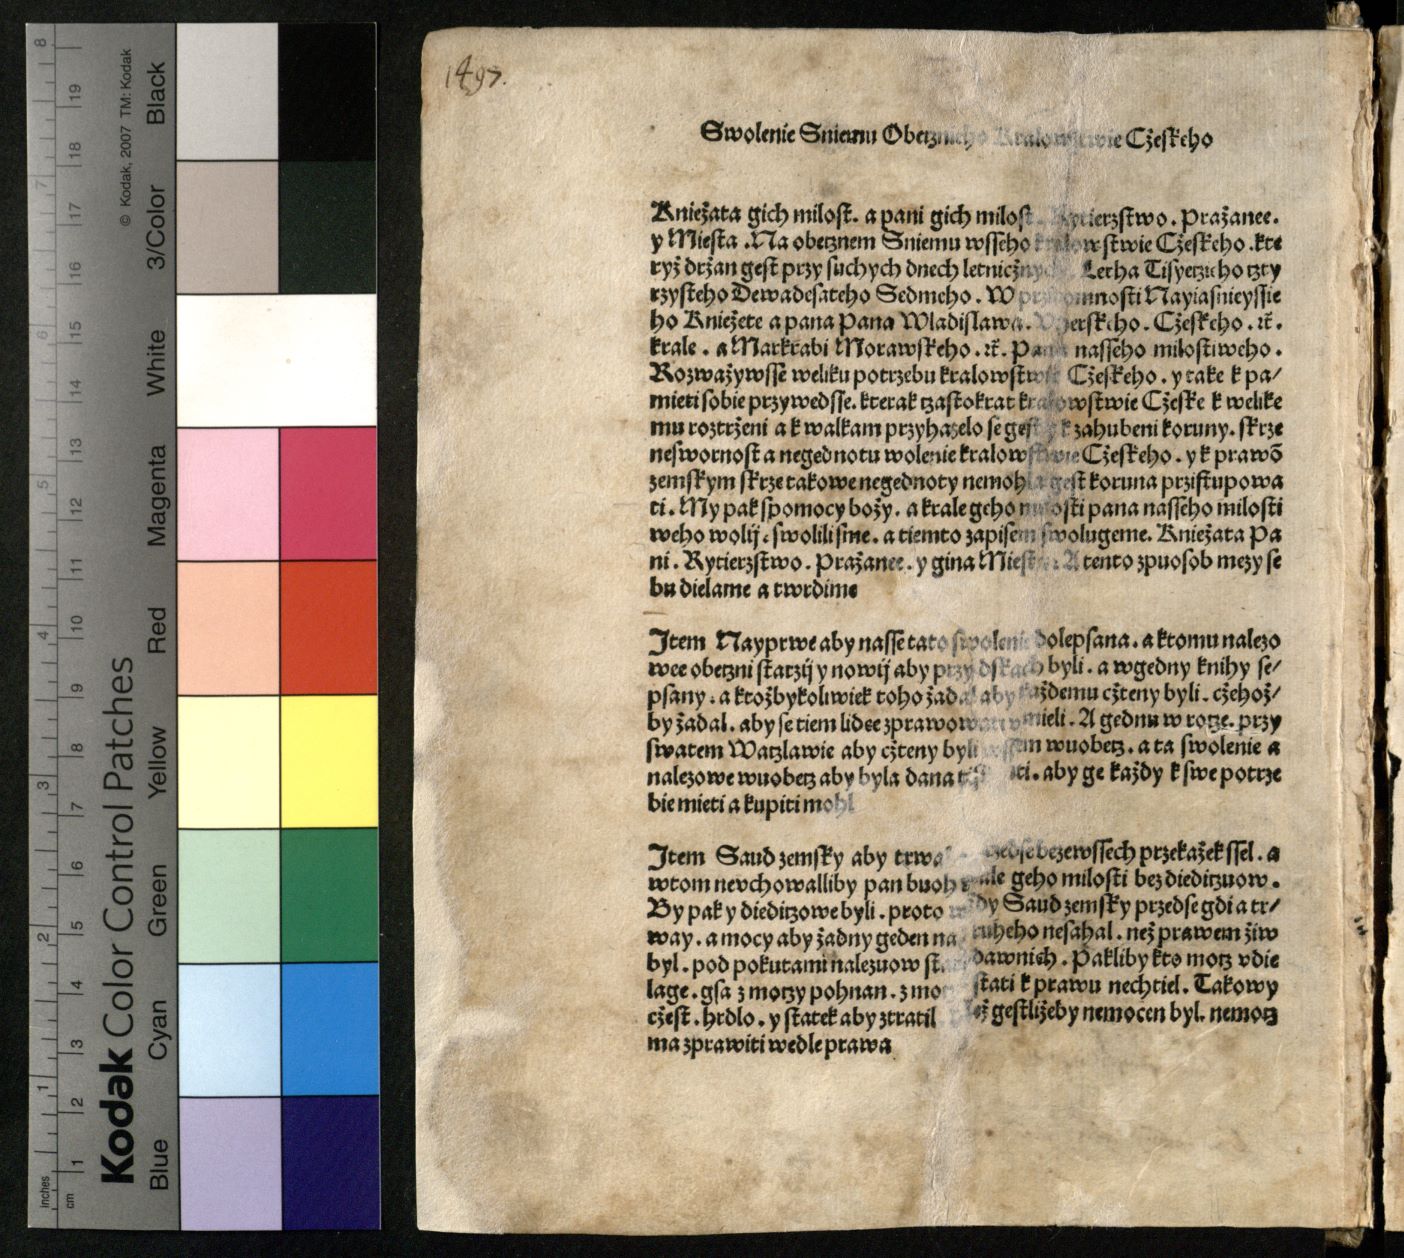 1497.
Swolenie Sniemu Obetznieho Kralowstwie Cžeskeho
Kniežata gich milost. a pani gich milost Rytierzstwo. Pražanee.
y Miesta. Na obetznem Sniemu wsseho kralowstwie Cžeskeho. kte
ryž držan gest przy suchych dnech letnicžnych Letha Tisyetzieho tzty
rzysteho Dewadesateho Sedmeho. W przitomnosti Nayiasnieyssie
ho Kniežete a pana Pana Wladislawa. Vherskeho. Cžeskeho. ꝛč.
krale. a Markrabi Morawskeho. ꝛč. Pana nasseho milostiweho.
Rozwažywsse weliku potrzebu kralowstwie Cžeskeho. y take k pa/
mieti sobie przywedsse. kterak tzastokrat kralowstwie Cžeske k welike
mu roztrženi a k walkam przyhazelo se gest y k zahubeni koruny. skrze
neswornost a negednotu wolenie kralowstwie Cžeskeho. y k prawō
zemskym skrze takowe negednoty nemohla gest koruna przistupowa
ti. My pak spomocy božy. a krale geho milosti pana nasseho milosti
weho wolij. swolili sme. a tiemto zapisem swolugeme. Kniežata Pa
ni. Rytierzstwo. Pražanee. y gina Miesta. A tento zpuosob mezy se
bu dielame a twrdime
Item Nayprwe aby nasse tato swolenie dolepsana. a ktomu nalezo
wee obetzni starzij y nowij aby przy dskach byli. a wgedny knihy se/
psany. a ktožbykoliwiek toho žadal aby každemu cžteny byli. cžehož/
by žadal. aby se tiem lidee zprawowati vmieli. A gednu w rotze. przy
swatem Watzlawie aby cžteny byli wssem wuobetz. a ta swolenie a
nalezowe wuobetz aby byla dana aby ge každy k swe potrze
bie mieti a kupiti mohl
Item Saud zemsky aby trwal przedse bezewssech przekažek ssel. a
wtom nevchowalliby pan buoh krale geho milosti bez dieditzuow.
By pak y dieditzowe byli. proto wždy Saud zemsky przedse gdi a tr/
way. a mocy aby žadny geden na druheho nesahal. než prawem žiw
byl. pod pokutami nalezuow starodawnich. Pakliby kto motz vdie
lage. gsa z motzy pohnan. z mo stati k prawu nechtiel. Takowy
cžest. hrdlo. y statek aby ztratil než gestližeby nemocen byl. nemotz
ma zprawiti wedle prawa